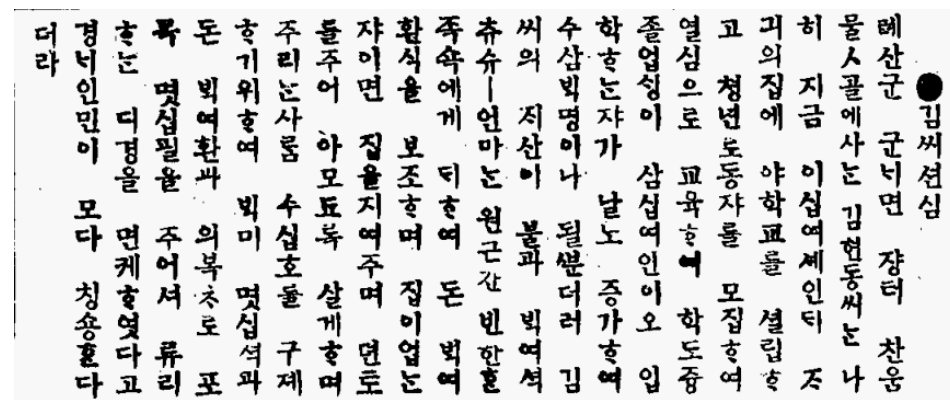 ●김씨션심
례산군 군ᄂᆡ면 쟝터 찬움
물ㅅ골에사ᄂᆞᆫ 김현동씨ᄂᆞᆫ 나
히 지금 이십여셰인ᄃᆡ ᄌᆞ
긔의집에 야학교를 셜립ᄒᆞ
고 쳥년로동쟈를 모집ᄒᆞ여
열심으로 교육ᄒᆞ여 학도즁
졸업ᄉᆡᆼ이 삼십여인이오 입
학ᄒᆞᄂᆞᆫ쟈가 날노 증가ᄒᆞ여
수삼ᄇᆡᆨ명이나 될ᄲᅮᆫ더러 김
씨의 ᄌᆡ산이 불과 ᄇᆡᆨ여셕
츄슈ㅣ언마ᄂᆞᆫ 원근간 빈한ᄒᆞᆫ
족쇽에게 ᄃᆡᄒᆞ여 돈 ᄇᆡᆨ여
환식을 보조ᄒᆞ며 집이업ᄂᆞᆫ
쟈이면 집을지여주며 뎐토
들주어 아모됴록 살게ᄒᆞ며
주리ᄂᆞᆫ사ᄅᆞᆷ 수십호를 구졔
ᄒᆞ기위ᄒᆞ여 ᄇᆡᆨ미 몃십셕과
돈 ᄇᆡᆨ여환과 의복ᄎᆞ로 포
목 몃십필을 주어셔 류리
ᄒᆞᄂᆞᆫ 디경을 면케ᄒᆞ엿다고
경ᄂᆡ인민이 모다 칭숑ᄒᆞᆫ다
더라